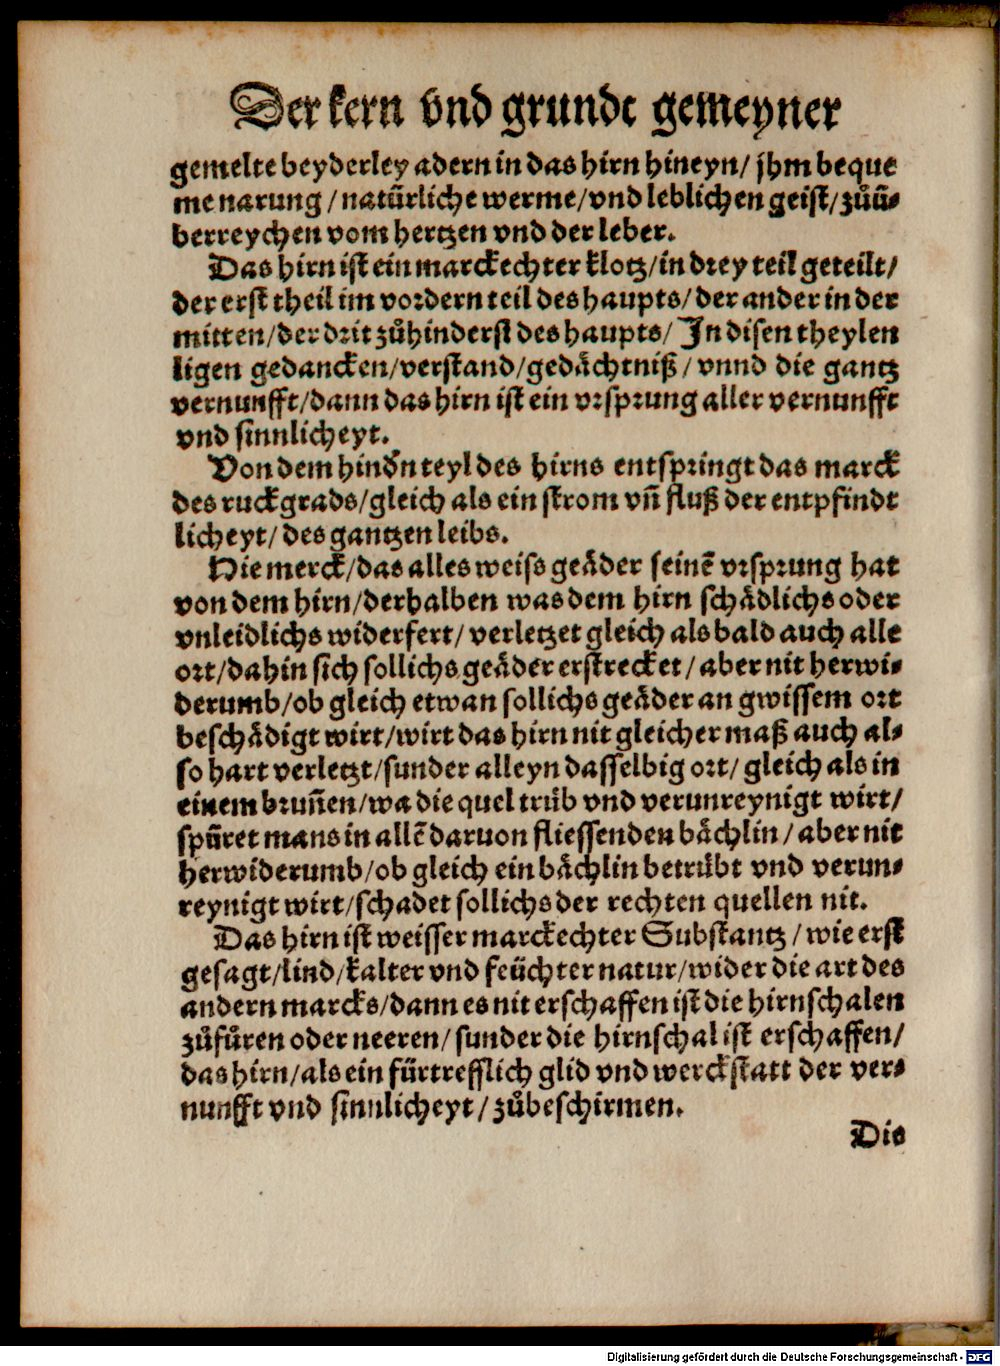 Der kern vnd grundt gemeyner
gemelte beyderley adern in das hirn hineyn/ jhm beque
me narung/ natürliche werme/ vnd leblichen geist/ zůü⸗
berreychen vom hertzen vnd der leber.
Das hirn ist ein marckechter klotz/ in drey teil geteilt/
der erst theil im vordern teil des haupts/ der ander in der
mitten/ der drit zůhinderst des haupts/ In disen theylen
ligen gedancken/ verstand/ gedächtniß/ vnnd die gantz
vernunfft/ dann das hirn ist ein vrsprung aller vernunfft
vnd sinnlicheyt.
Von dem hindn teyl des hirns entspringt das marck
des ruckgrads/ gleich als ein strom vñ fluß der entpfindt
licheyt/ des gantzen leibs.
Hie merck/ das alles weiss geäder seinẽ vrsprung hat
von dem hirn/ derhalben was dem hirn schädlichs oder
vnleidlichs widerfert/ verletzet gleich als bald auch alle
ort/ dahin sich sollichs geäder erstrecket/ aber nit herwi⸗
derumb/ ob gleich etwan sollichs geäder an gwissem ort
beschädigt wirt/ wirt das hirn nit gleicher maß auch al⸗
so hart verletzt/ sunder alleyn dasselbig ort/ gleich als in
einem bruñen/ wa die quel trüb vnd verunreynigt wirt/
spüret mans in allẽ daruon fliessenden bächlin/ aber nit
herwiderumb/ ob gleich ein bächlin betrübt vnd verun⸗
reynigt wirt/ schadet sollichs der rechten quellen nit.
Das hirn ist weisser marckechter Substantz/ wie erst
gesagt/ lind/ kalter vnd feüchter natur/ wider die art des
andern marcks/ dann es nit erschaffen ist die hirnschalen
zůfůren oder neeren/ sunder die hirnschal ist erschaffen/
das hirn/ als ein fürtrefflich glid vnd werckstatt der ver⸗
nunfft vnd sinnlicheyt/ zůbeschirmen.
Die
Digitalisierung gefördert durch die Deutsche Forschungsgemeinschaft - DFG